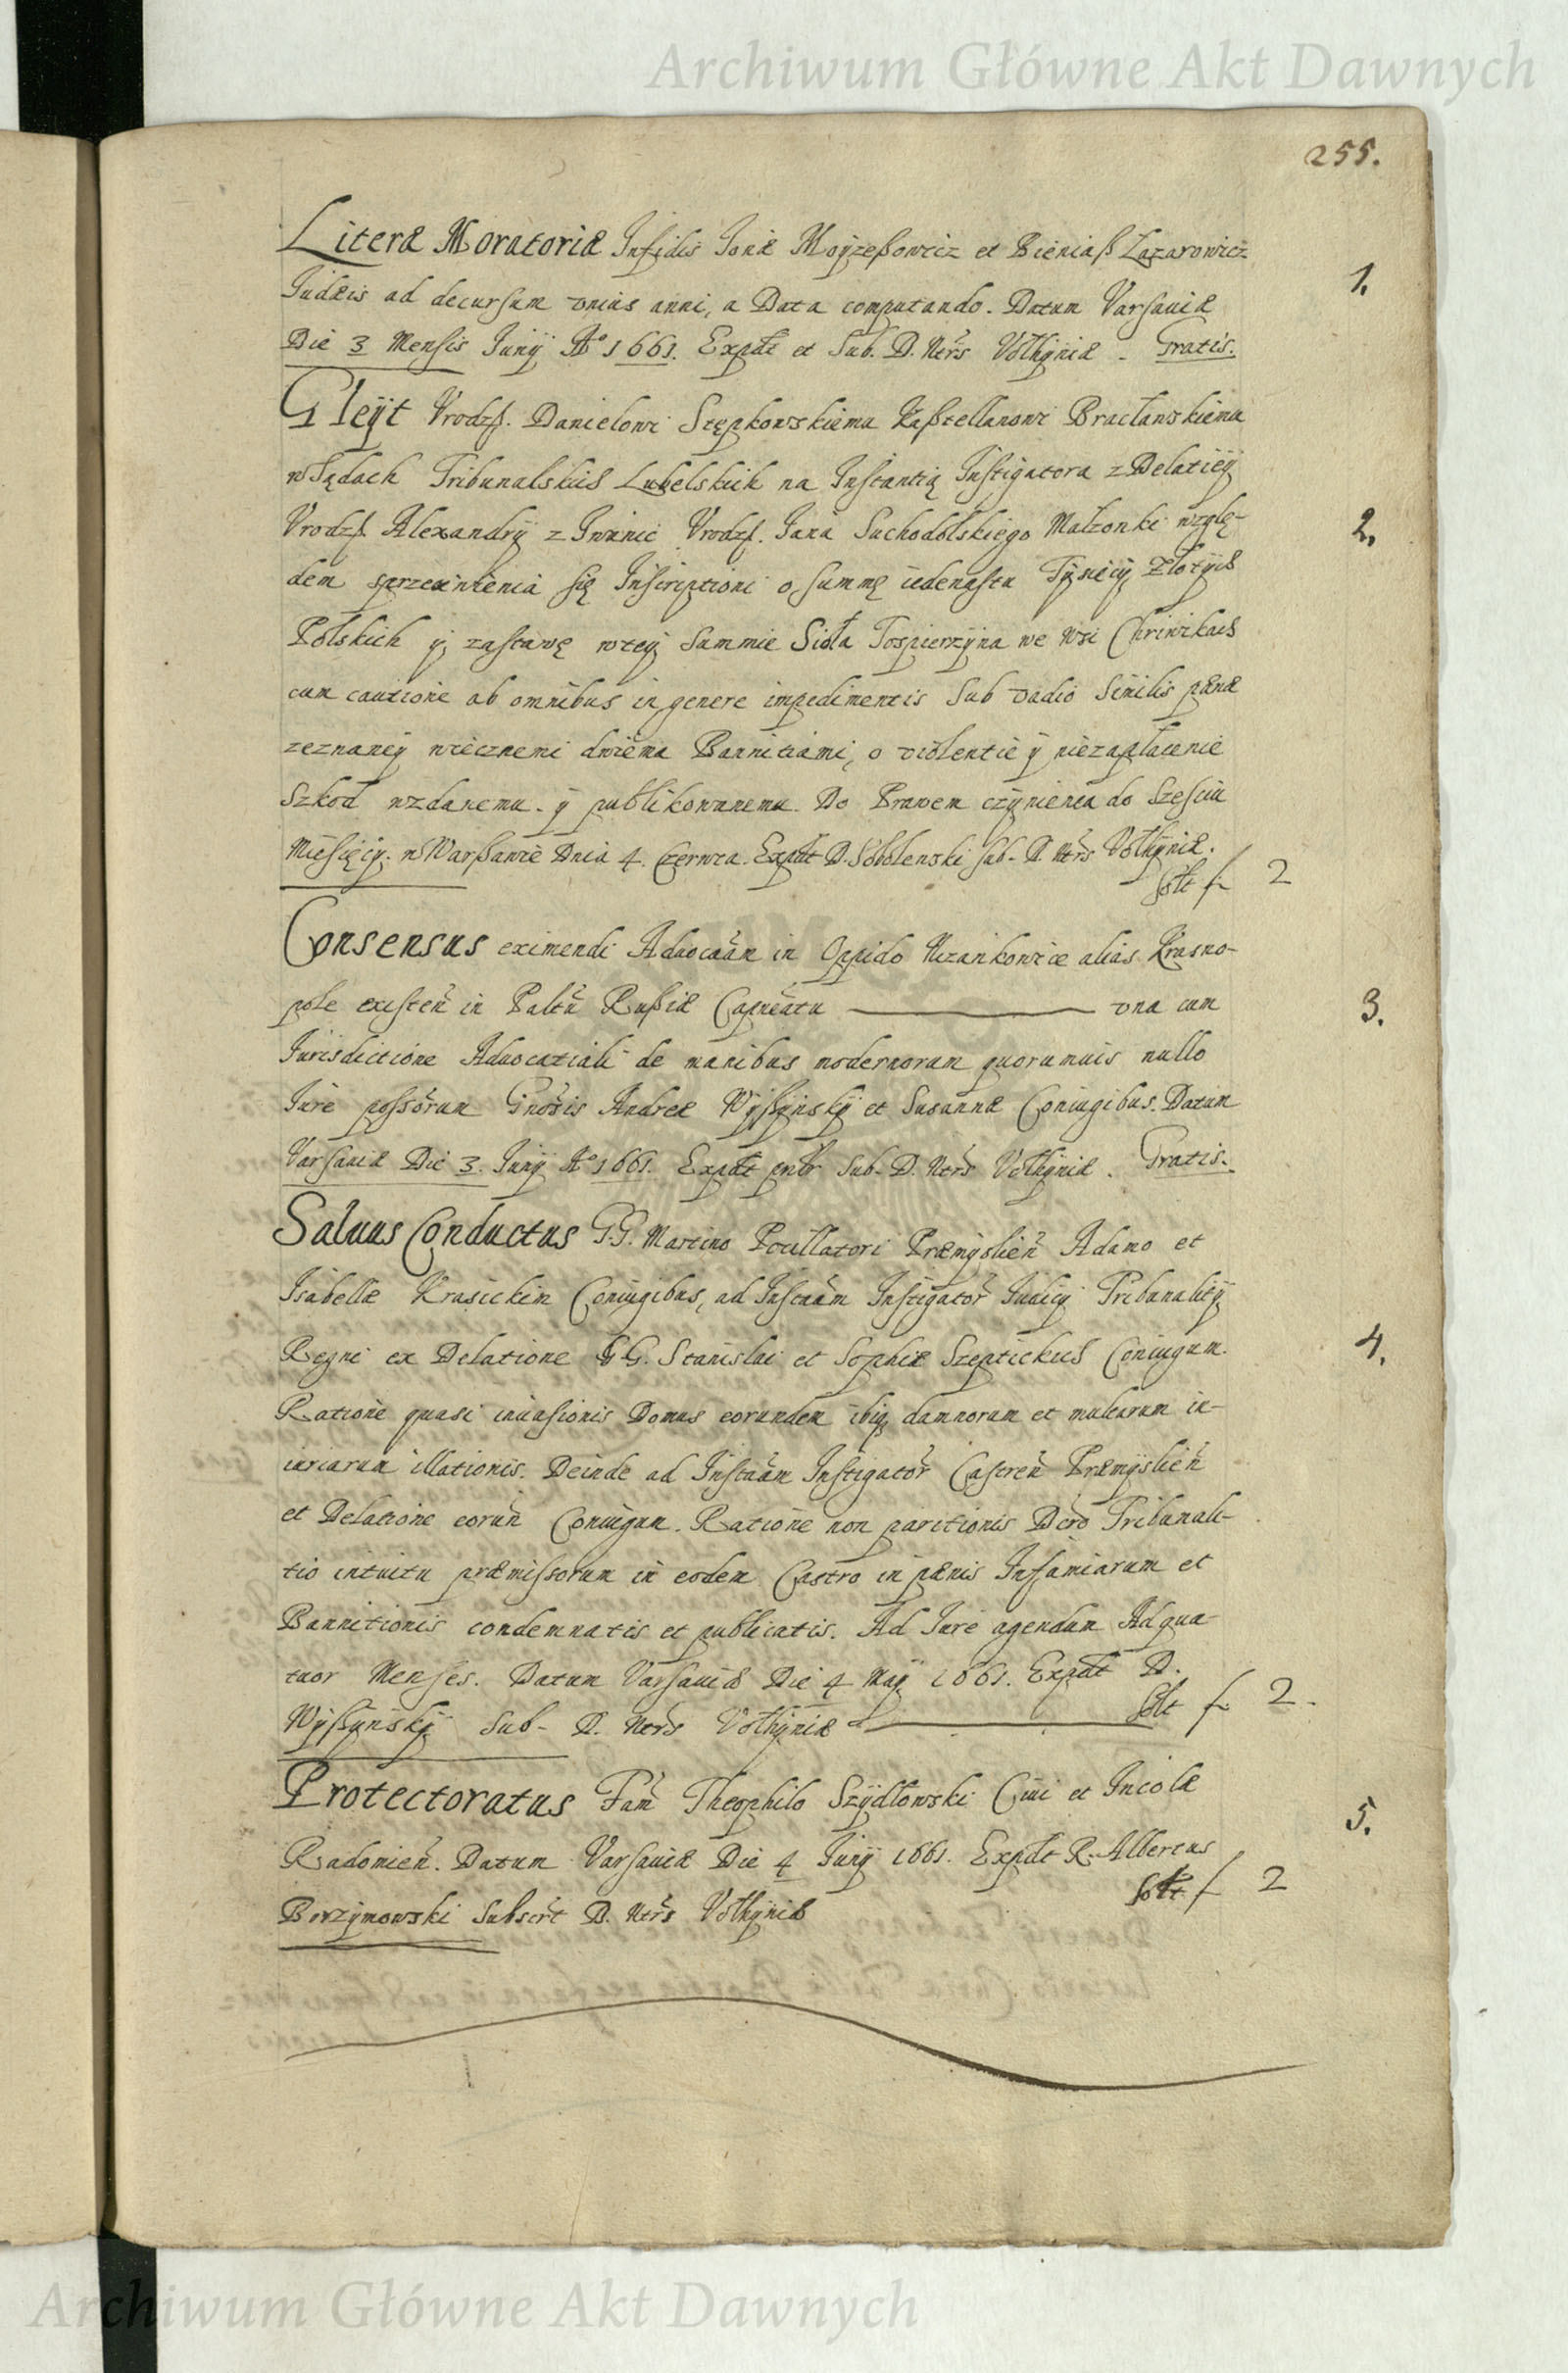 Archiwum Główne Akt Dawnych
255.
Literæ Moratoriæ Infidis Jonæ Moyzeßowicz et Bieniaß Lazarowicz
Judæis ad decursum vnius anni, a Data computando. Datum Varsauiæ
1.
Die 3 Mensis Junij Ao 1661. Expdt et Sub. D. Ntrs Volhyniæ - Gratis.
Gleyt Vrodz. Danielowi Stępkowskiemu Kaßtellanowi Bracławskiemu
w Sądach Tribunalskich Lubelskich na Instantią Instigatora z Delatiey
Vrodz. Alexandry z Iwanic Vrodz. Jana Suchodolskiego Małzonki wzglę-
2.
dem sprzeciwienia się Inscriptioni o summę iedenastu Tysięcy Złotych
Polskich y zastawę w tey Summie Sioła Tospierzyna we Wsi
cum cautione ab omnibus in genere impedimentis Sub vadio Similis pænæ
zeznaney wiecznemi dwiema Bannitiami, o violentie y niezapłacenie
Szkod wzdanemu. y publikowanemu. Do Prawem czynienia do Szesciu
Miesięcy. w Warßawie Dnia 4. Czerwca. Expdt D. Sobolewski sub. D. Ntrs Volhyniæ.
Solt f. 2
Consensus eximendi Aduocaãm in Oppido Nizankowice alias Krasno-
pole existeñ in Paltũ Rußiæ Capneatu ——— vna cum
3.
Jurisdictione Aduocatiali de manibus modernorum quorumuis nullo
Jure poßorum Gnosis Andreæ Wyßynsky et Susannæ Coniugibus. Datum
Varsauiæ Die 3. Junij Ao 1661. Expdt pntr Sub. D. Ntrs Volhyniæ. Gratis.
Saluus Conductus G.G. Martino Pocillatori Præmyslieñ Adamo et
Isabellæ Krasickim Coniugibus, ad Instaãm Instigator Judicij Tribunalitij
Regni ex Delatione GG. Stanislai et Sophiæ Szeptickich Coniugum.
4.
Ratione quasi inuasionis Domus eorundem ibiq damnorum et multarum in-
iuriarum illationis. Deinde ad Instaãm Instigator Castreñ Præmyslieñ
et Delatione eoruñ Coniugum. Ratione non paritionis Dcro Tribunali-
tio intuitu præmissorum in eodem Castro in pænis Infamiarum et
Bannitionis condemnatis et publicatis. Ad Jure agendum Ad qua-
tuor Menses. Datum Varsauiæ Die 4 May 1661. Expdt D.
Wyßynsky Sub- D. Ntrs Volhyniæ ——— Solt f. 2.
Protectoratus Fam Theophilo Szydłowski Ciui et Incolæ
5.
Radomieñ. Datum Varsauiæ Die 4 Junij 1661. Expdt R. Albertus
Borzymowski Subscrt D. Ntrs Volhyniæ Solt f 2
Archiwum Główne Akt Dawnych